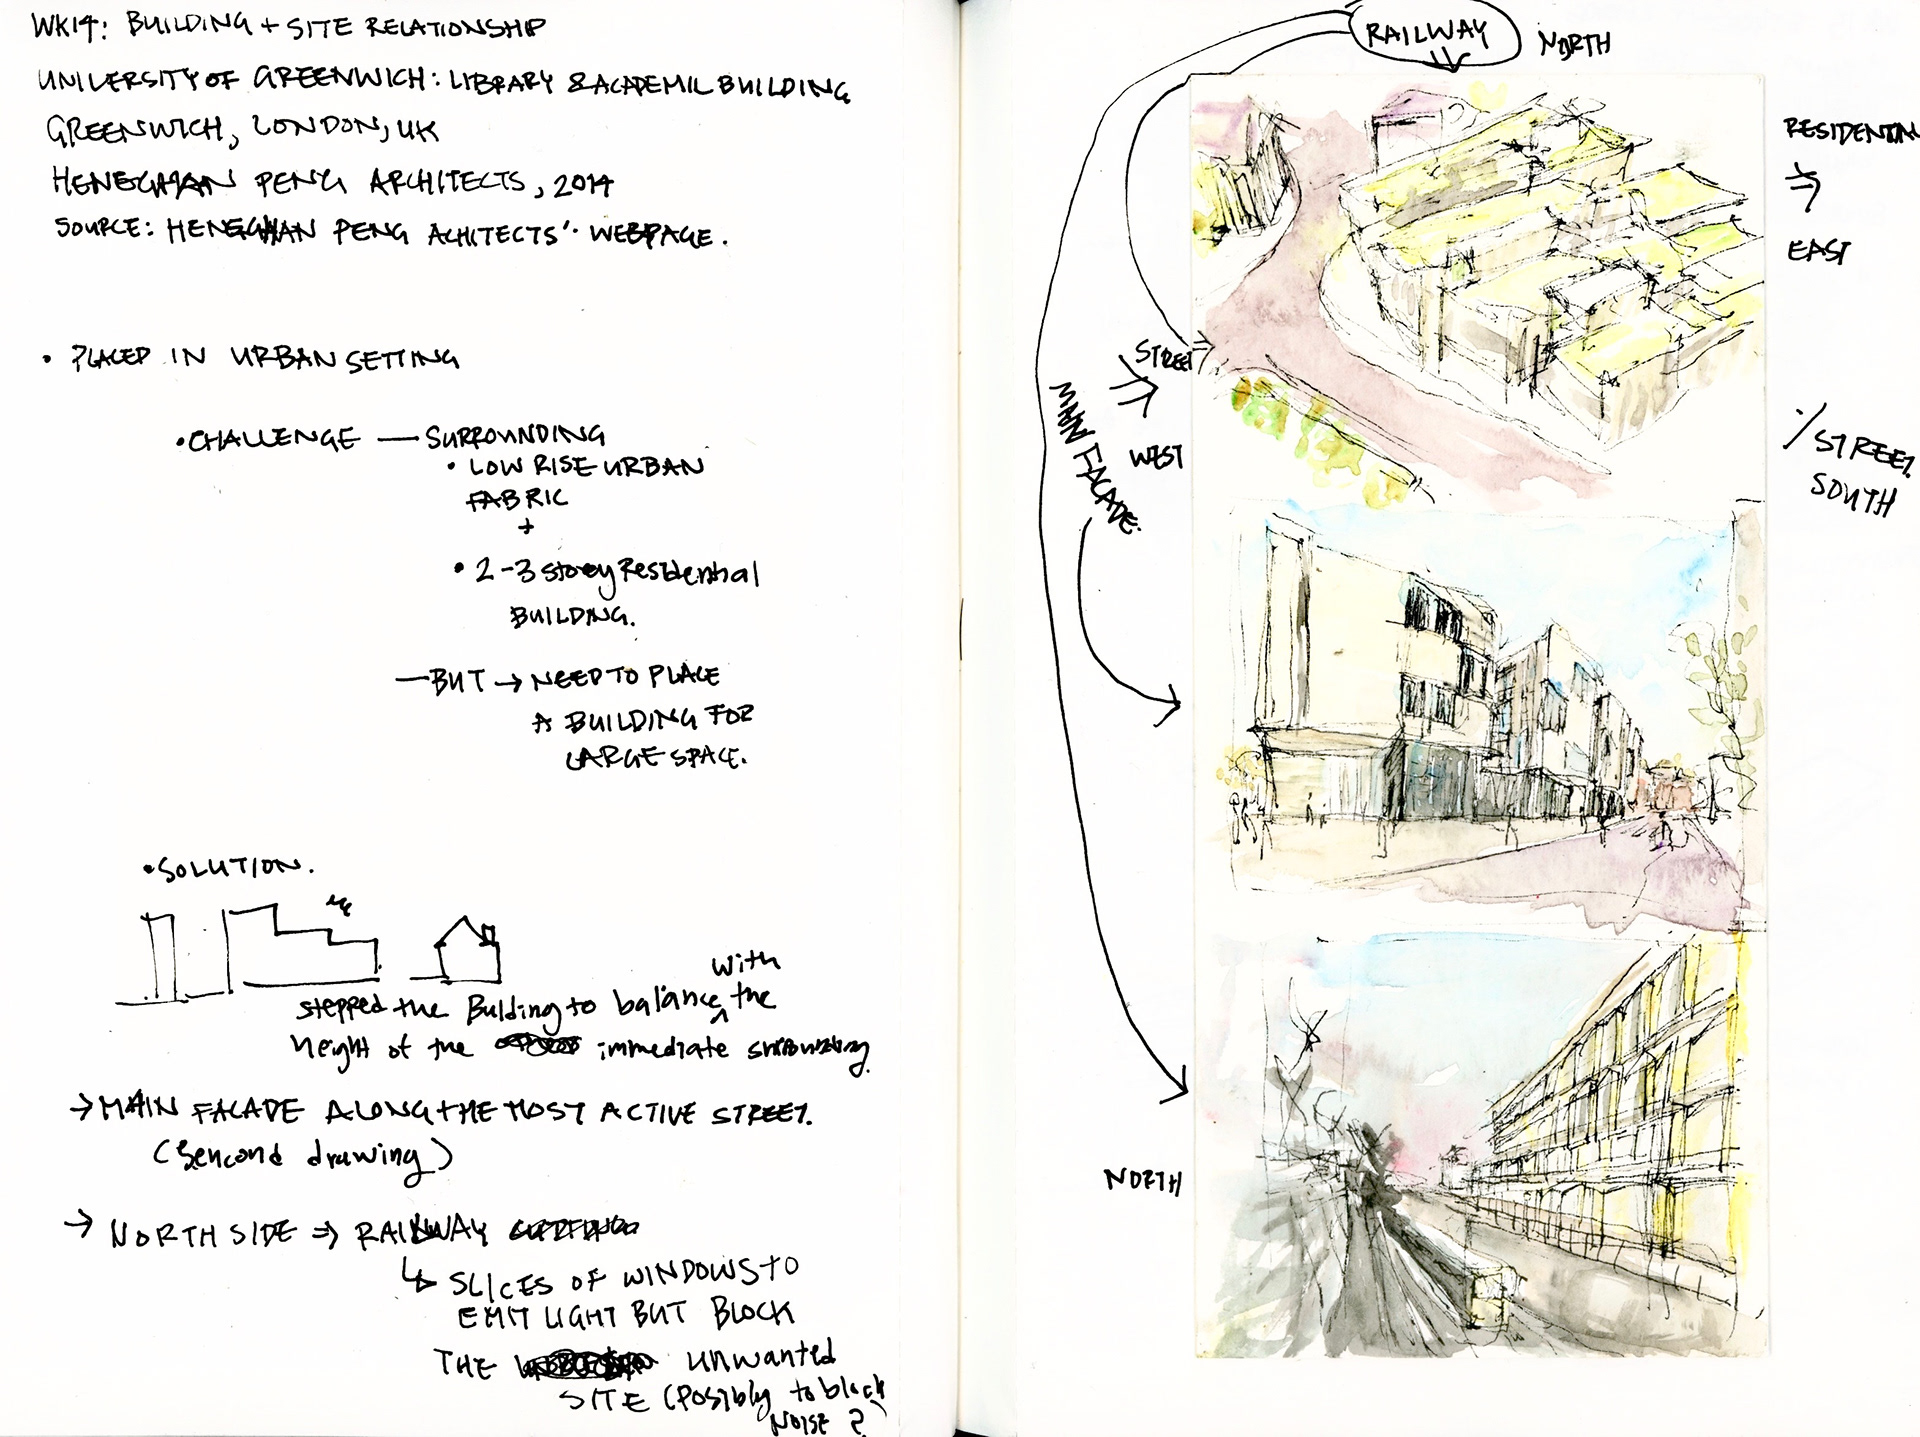 WK14: BUILDING + SITE RELATIONSHIP
UNIVERSITY OF GREENWICH: LIBRARY & ACADEMIC BUILDING
GREENWICH, LONDON, UK
HENEGHAN PENG ARCHITECTS, 2014
SOURCE: HENEGHAN PENG ACHITECTS' WEBPAGE.
• PLACED IN URBAN SETTING
• CHALLENGE — SURROUNDING
• LOW RISE URBAN
FABRIC
+
• 2-3 storey Residential
BUILDING.
— BUT → NEED TO PLACE
A BUILDING FOR
LARGE SPACE.
• SOLUTION.
with
stepped the Bulding to balance ^ the
height of the immediate surrounding.
→ MAIN FACADE ALONG THE MOST ACTIVE STREET.
(Sencond drawing)
→ NORTH SIDE ⇒ RAILWAY
↳ SLICES OF WINDOWS TO
EMIT LIGHT BUT BLOCK
THE unwanted
SITE (POSIBly to block
NOISE ?
RAILWAY
NORTH
RESIDENTIAL
EAST
STREET
WEST
MAIN FACADE.
STREET.
SOUTH
NORTH